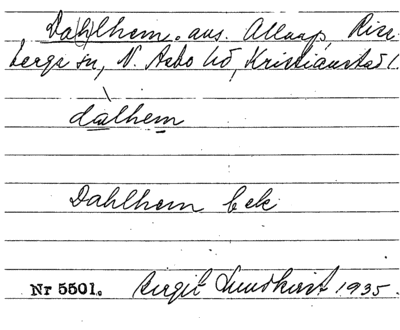 Da(h)lhem. avs. Allarp, Riss-
berga sn, N. Åsbo hd, Kristianstad l.
dalhem
Dahlhem bek
Nr 5501. Birgit Lundkvist 1935.